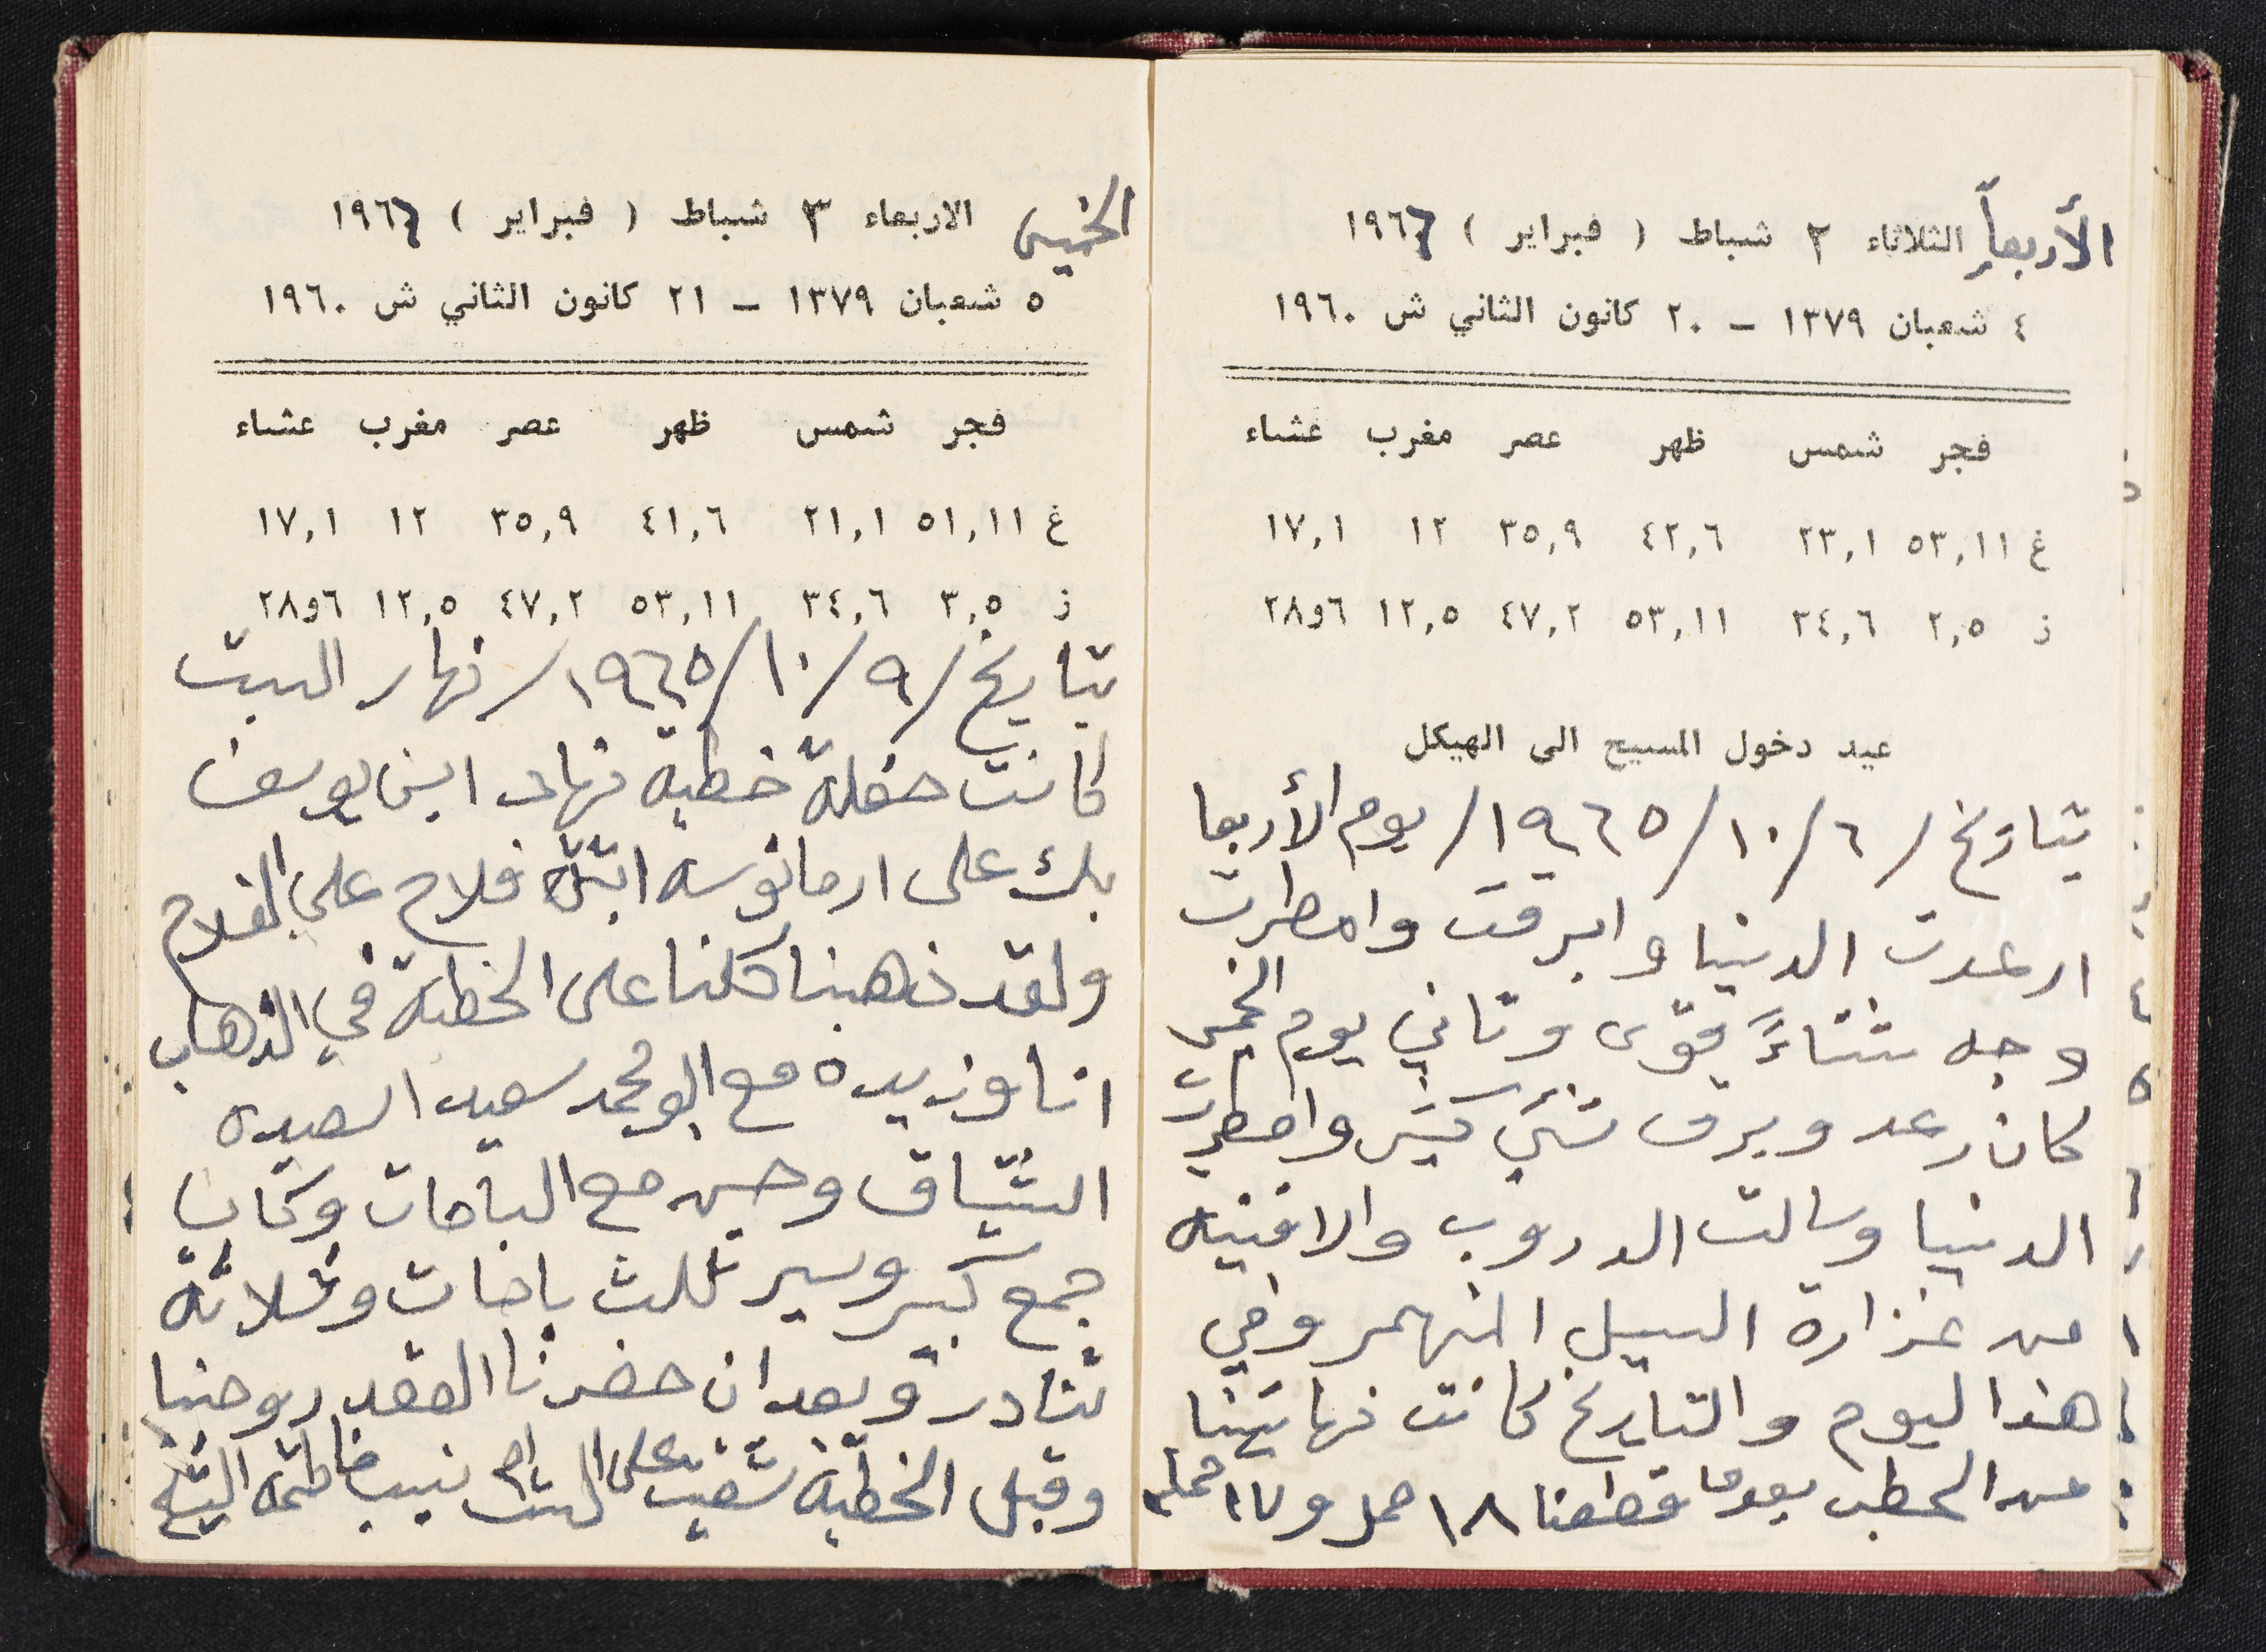 الأربعاء الثلاثاء ٢ شباط ( فبراير ) ١٩٦٦
٤ شعبان ١٣٧٩ – ٢٠ كانون الثاني ش ١٩٦٠
فجر شمس ظهر عصر مغرب عشاء
غ ٥٣,١١ ٢٣,١ ٤٢,٦ ٣٥,٩ ١٢ ١٧,١
ز ٢,٥ ٣٤,٦ ٥٣,١١ ٤٧,٢ ١٢,٥ ٦و٢٨
عيد دخول المسيح الى الهيكل
بتاريخ /٦/١٠/١٩٦٥/ يوم الأربعا
ارعدت الدنيا وابرقت وامطرت
وجه شتاءً قوى وتاني يوم الخميس
كان رعد وبرق شيء كثير وامطرت
الدنيا وسالت الدروب والاقنيه
من غزارة السيل المنهمر وفي
هذا اليوم والتاريخ كانت نهايتنا
من الحطب يعدما قطعنا ١٨ حمل
الخميس الاربعاء ٣ شباط ( فبراير ) ١٩٦٦
٥ شعبان ١٣٧٩ – ٢١ كانون الثاني ش ١٩٦٠
فجر شمس ظهر عصر مغرب عشاء
غ ٥١,١١ ٢١,١ ٤١,٦ ٣٥,٩ ١٢ ١٧,١
ز ٣,٥ ٣٤,٦ ٥٣,١١ ٤٧,٢ ١٢,٥ ٦و٢٨
بتاريخ /٩/١٠/١٩٦٥/ نهار السبت
كانت حفلة خطبة نهاد ابن يوسف
بك على ارمانوسه ابنة فلاح علي الفلاح
ولقد ذهبنا كلنا على الخطبة في الذهاب
انا وزيده مع ابو محمد سعيد
مع الباصات وكان
جمع كبير وسير ثلث باصات وثلاثة
وبعد ان حضرنا العقد روحنا
وقبل الخطبة على الست ام نسيب فاطمه